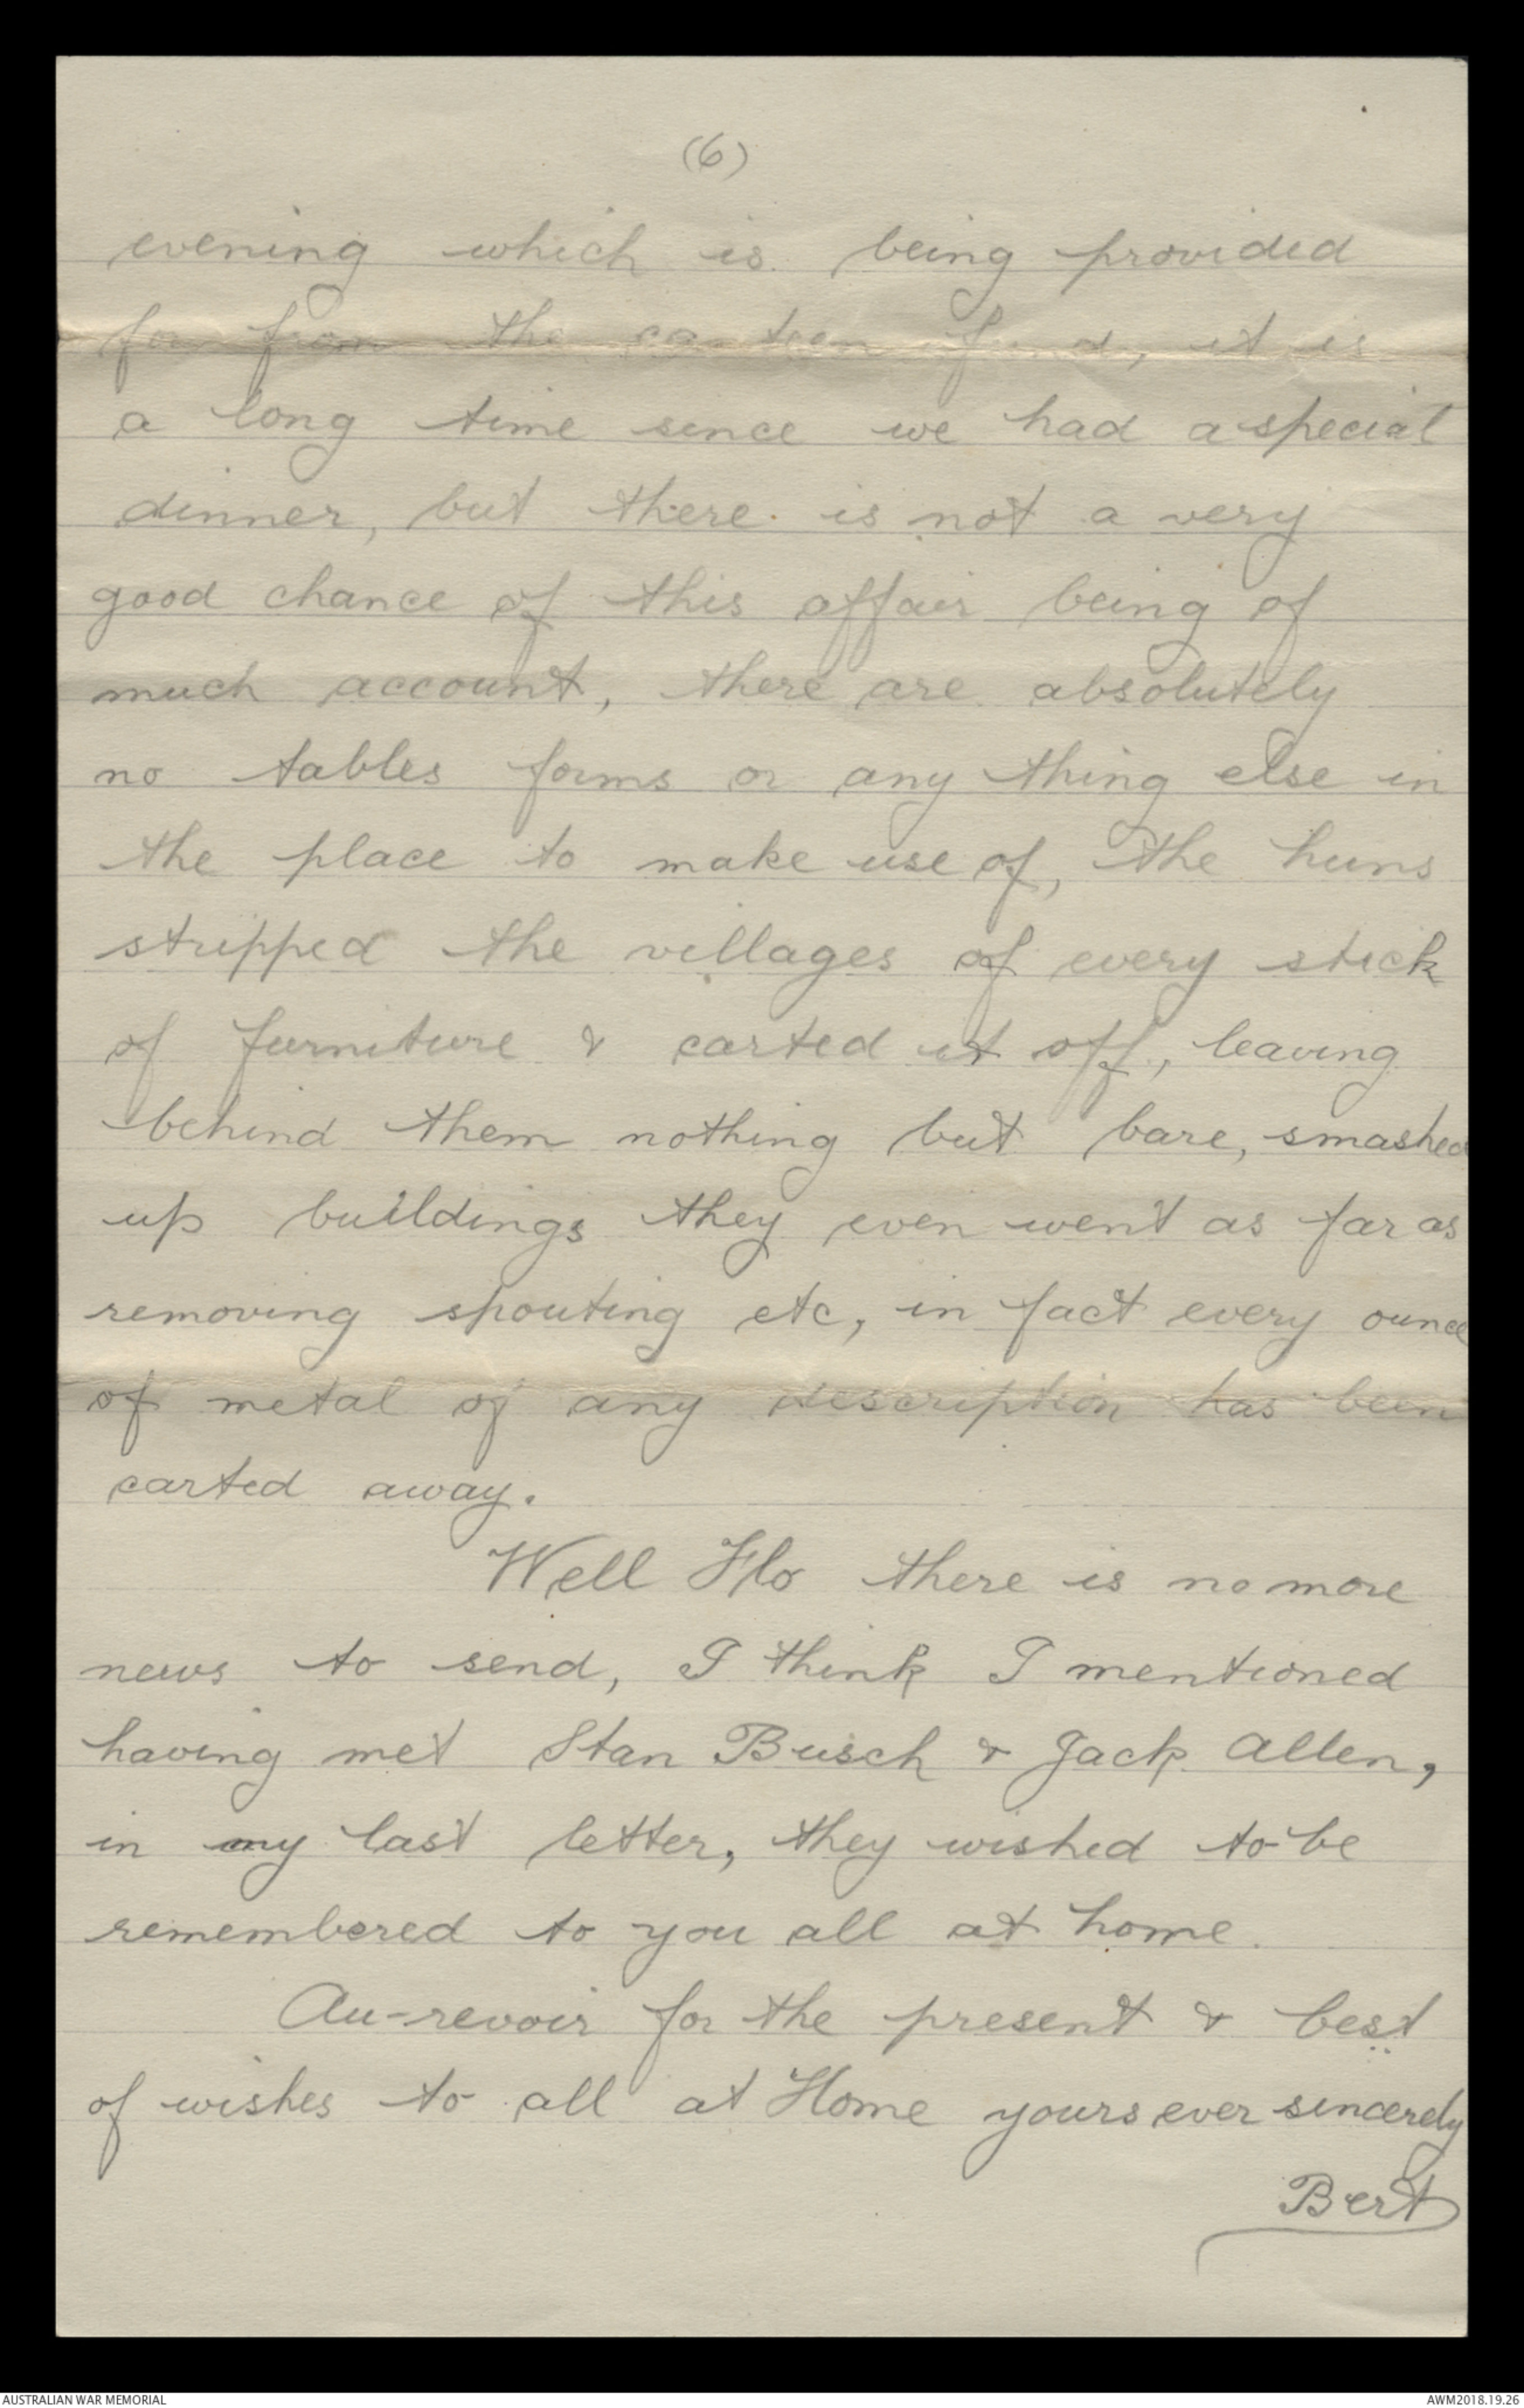 (6)
evening which is being provided
for from the canteen fund, it is
a long time since we had a special
dinner, but there is not a very
good chance of this affair being of
much account, there are absolutely
no tables forms or any thing else in
the place to make use of, the huns
stripped the villages of every stick
of furniture & carted it off, leaving
behind them nothing but bare, smashed
up buildings they even went as far as
removing spouting etc, in fact every ounce
of metal of any description has been
carted away.
Well Flo there is no more
news to send, I think I mentioned
having met Stan Busch & Jack Allen,
in my last letter, they wished to be
remembered to you all at home.
Au-revoir for the present & best
of wishes to all at Home yours ever sincerely
Bert
AUSTRALIAN WAR MEMORIAL AWM2018.19.26